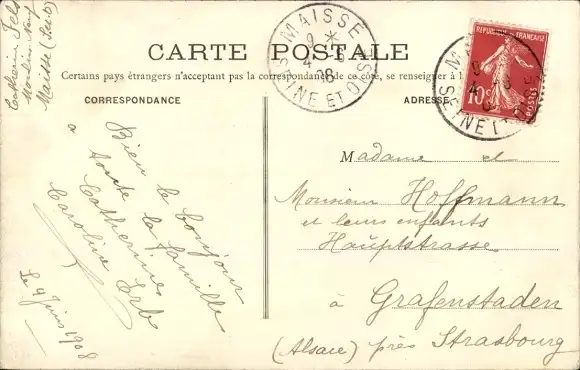 Moulin-Neuf
Maisse
CARTE POSTALE
Certains pays étrangers n'acceptant pas la correspondance de ce côté, se renseigner à l
CORRESPONDANCE
ADRESSE
MAISSE
SEINE ET OISE
REPUBLIQUE FRANÇAISE
10c
POSTES
Bien le bonjour
à toute la famille
Catherine
Caroline Erb
Le 4 Juin 1908
Madame et
Monsieur Hoffmann
et leurs enfants
Hauptstrasse
à Grafenstaden
(Alsace) près Strasbourg